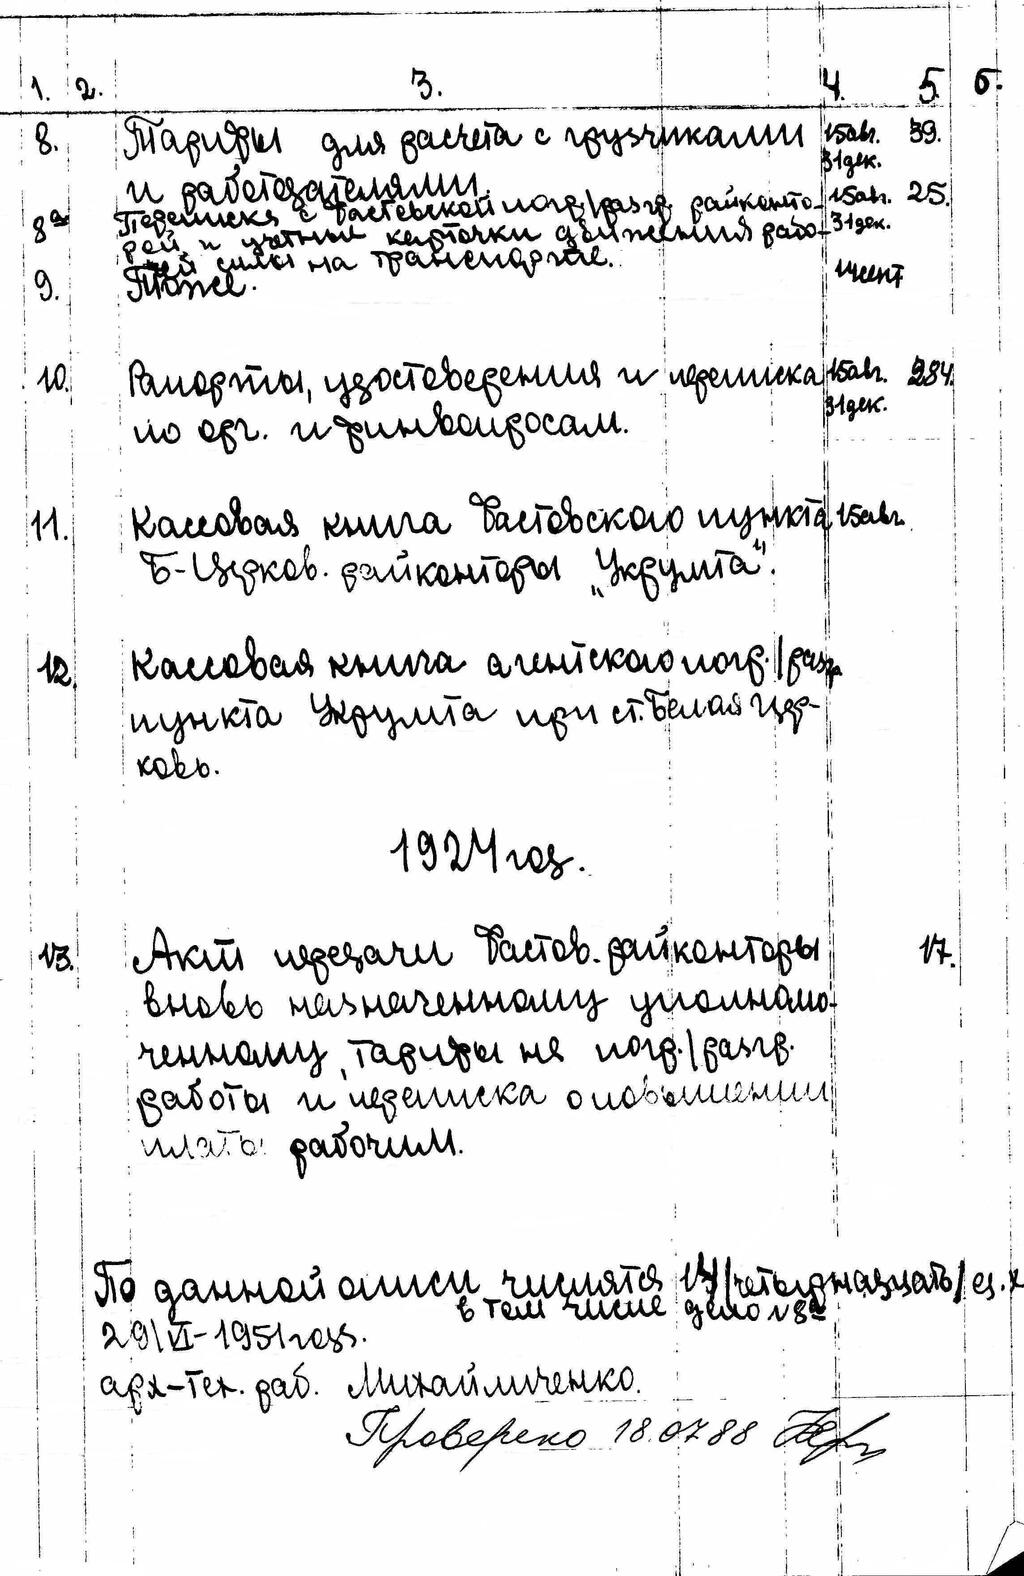 1. 2. 3. 4. 5. 6.
8. Тарифы для расчета с грузчиками 15авг. 39.
и работодателями. 31дек.
8а Переписка с Фастовской погр./разгр. райконто- 15авг. 25.
рой и учетные карточки движения рабо- 31дек.
чей силы на транспорте.
9. Тоже. 1сент.
10. Рапорты, удостоверения и переписка 15авг. 284.
по орг. и финвопросам. 31дек.
11. Кассовая книга Фастовского пункта 15авг.
Б-Церков. райконторы „Укрумта".
12. Кассовая книга агентского погр./разгр
пункта Укрумта при ст. Белая Цер-
ковь.
1924 год.
13. Акт передачи Фастов. райконторы 17.
вновь назначенному уполномо-
ченному, тарифы на погр./разгр.
работы и переписка о повышении
платы рабочим.
По данной описи числятся 14/четырнадцать/ ед. х
в том числе дело №8а
29/VI-1951 года.
арх-тех. раб. Михайличенко.
Проверено 18.07.88